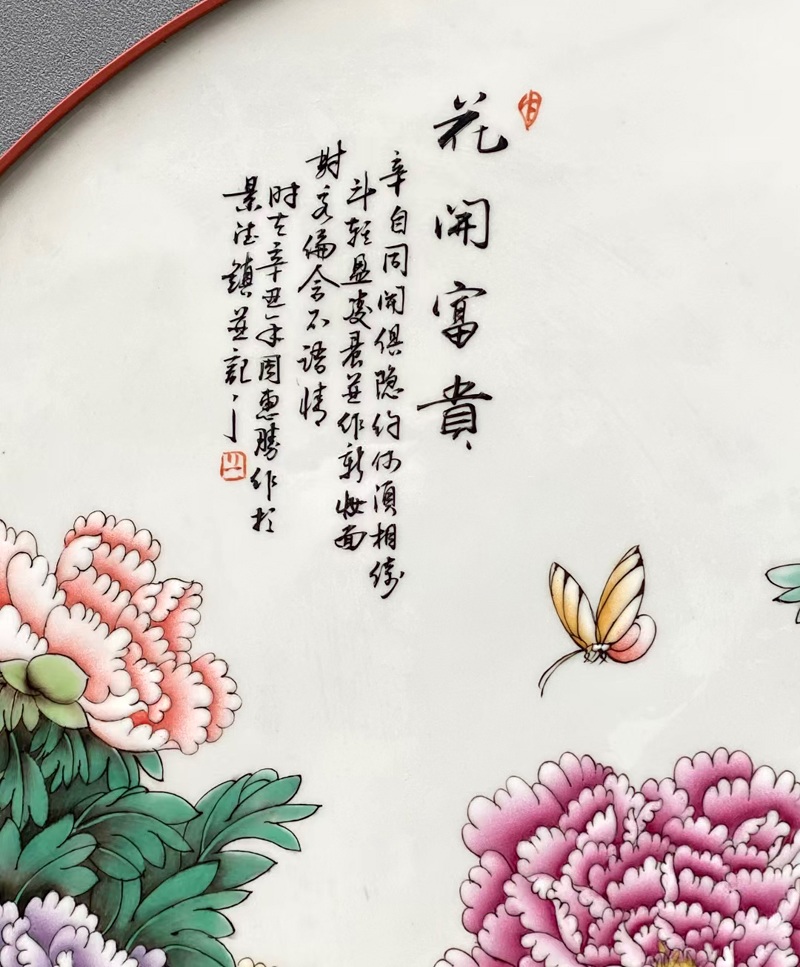 花開富貴
辛自同開俱隐约何須相倚
斗輕盈凌晨並作新妝面
對客偏含不語情
时在辛丑年周惠勝作於
景德鎮並記